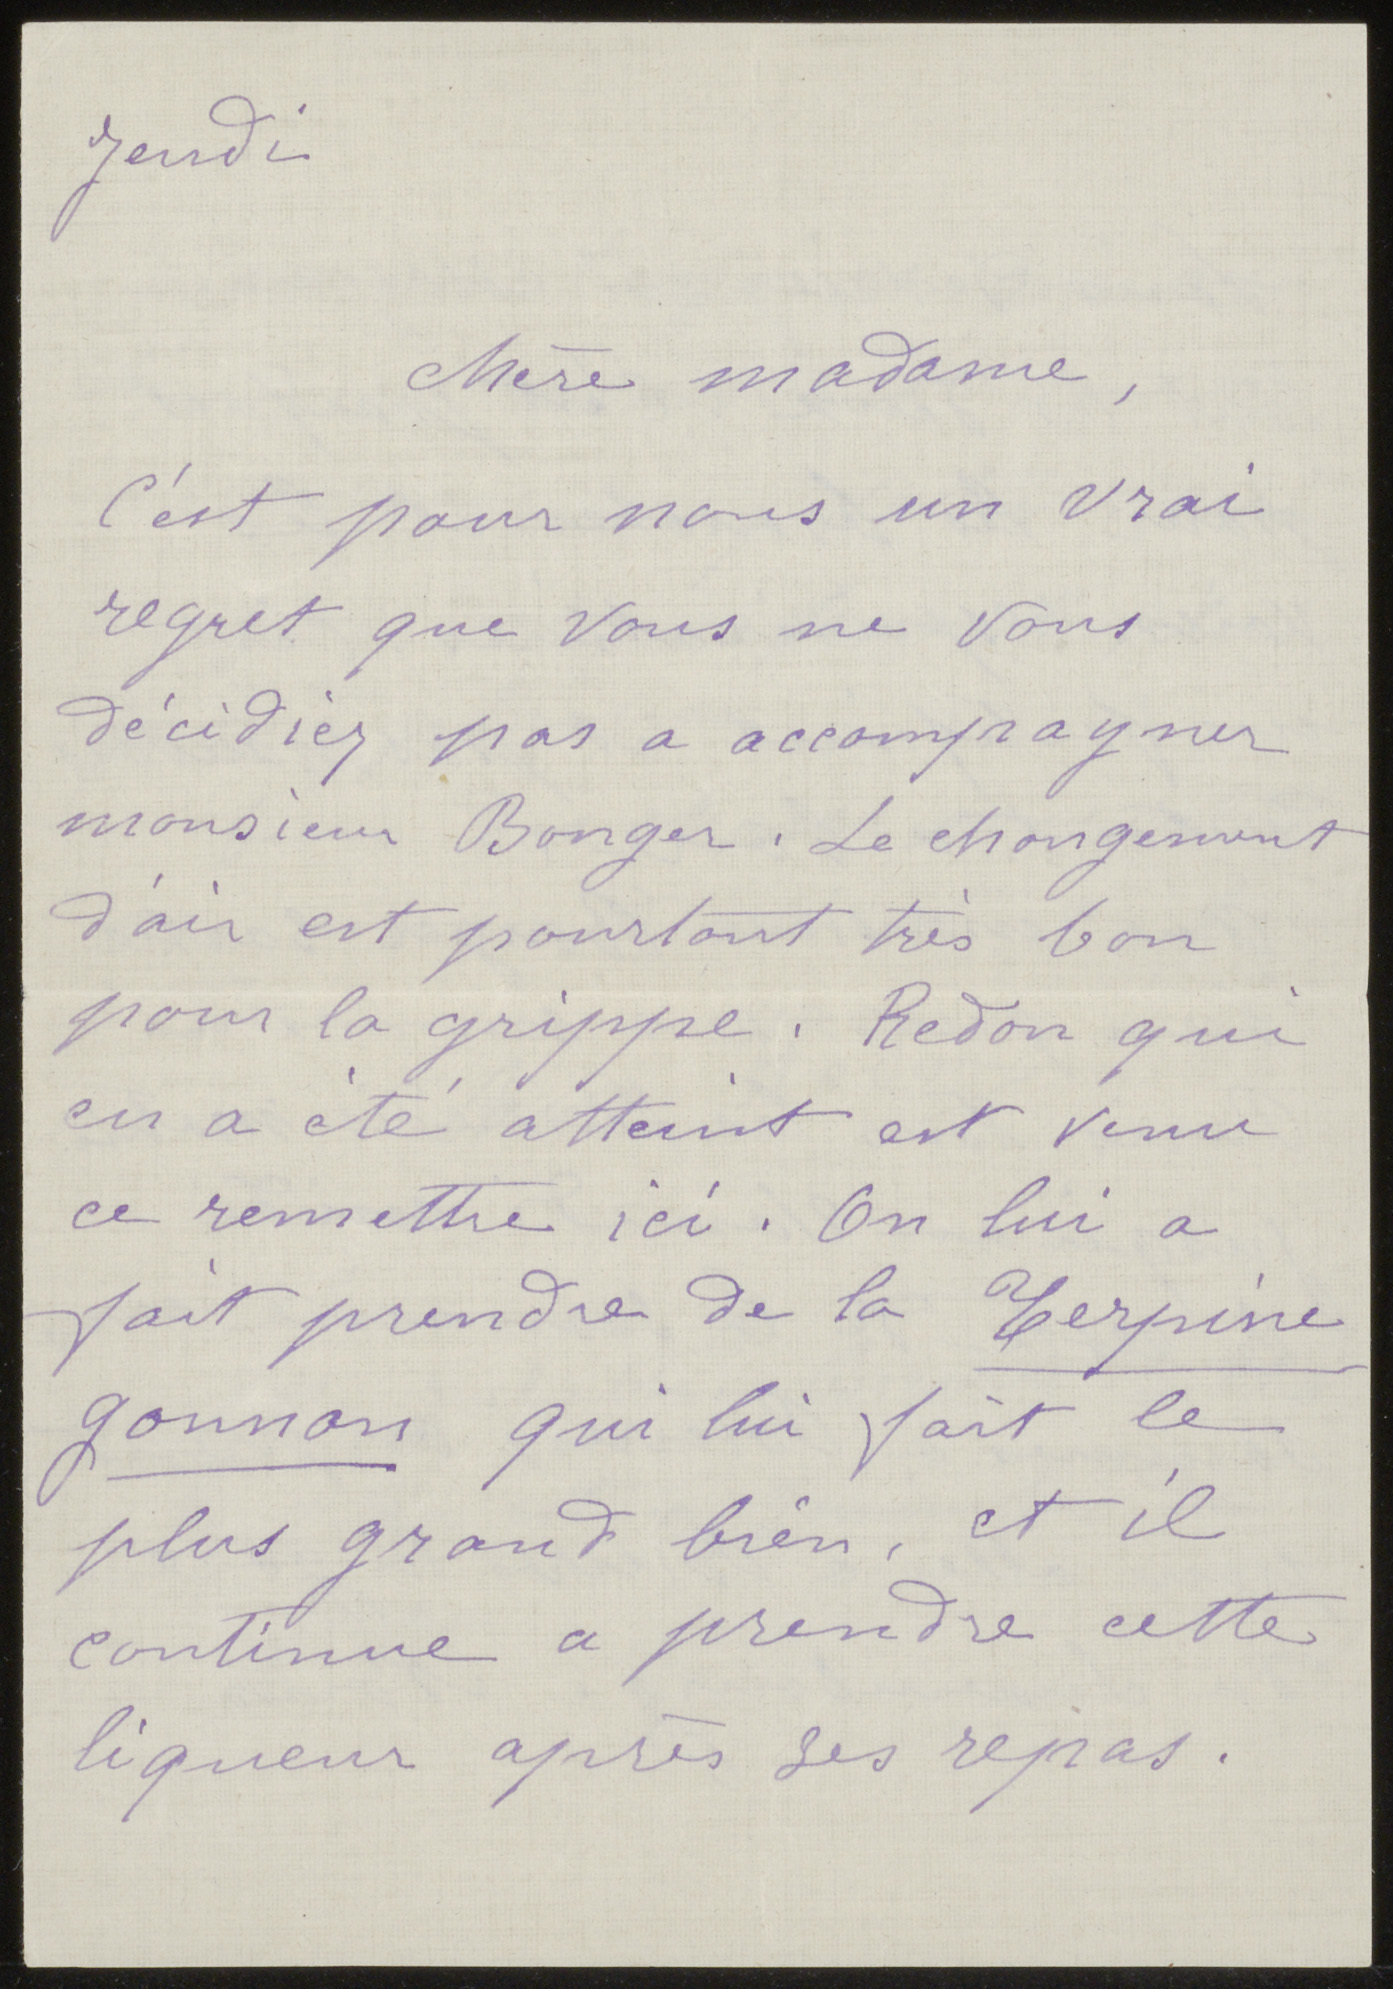 Jeudi
chère madame,
C'est pour nous un vrai
regret que vous ne vous
décidiez pas a accompagner
monsieur Bonger. Le changement
d'air est pourtant très bon
pour la grippe. Redon qui
en a été atteint est venu
ce remettre ici. On lui a
fait prendre de la Terpine
gonnon qui lui fait le
plus grand bien, et il
continue a prendre cette
liqueur après ses repas.